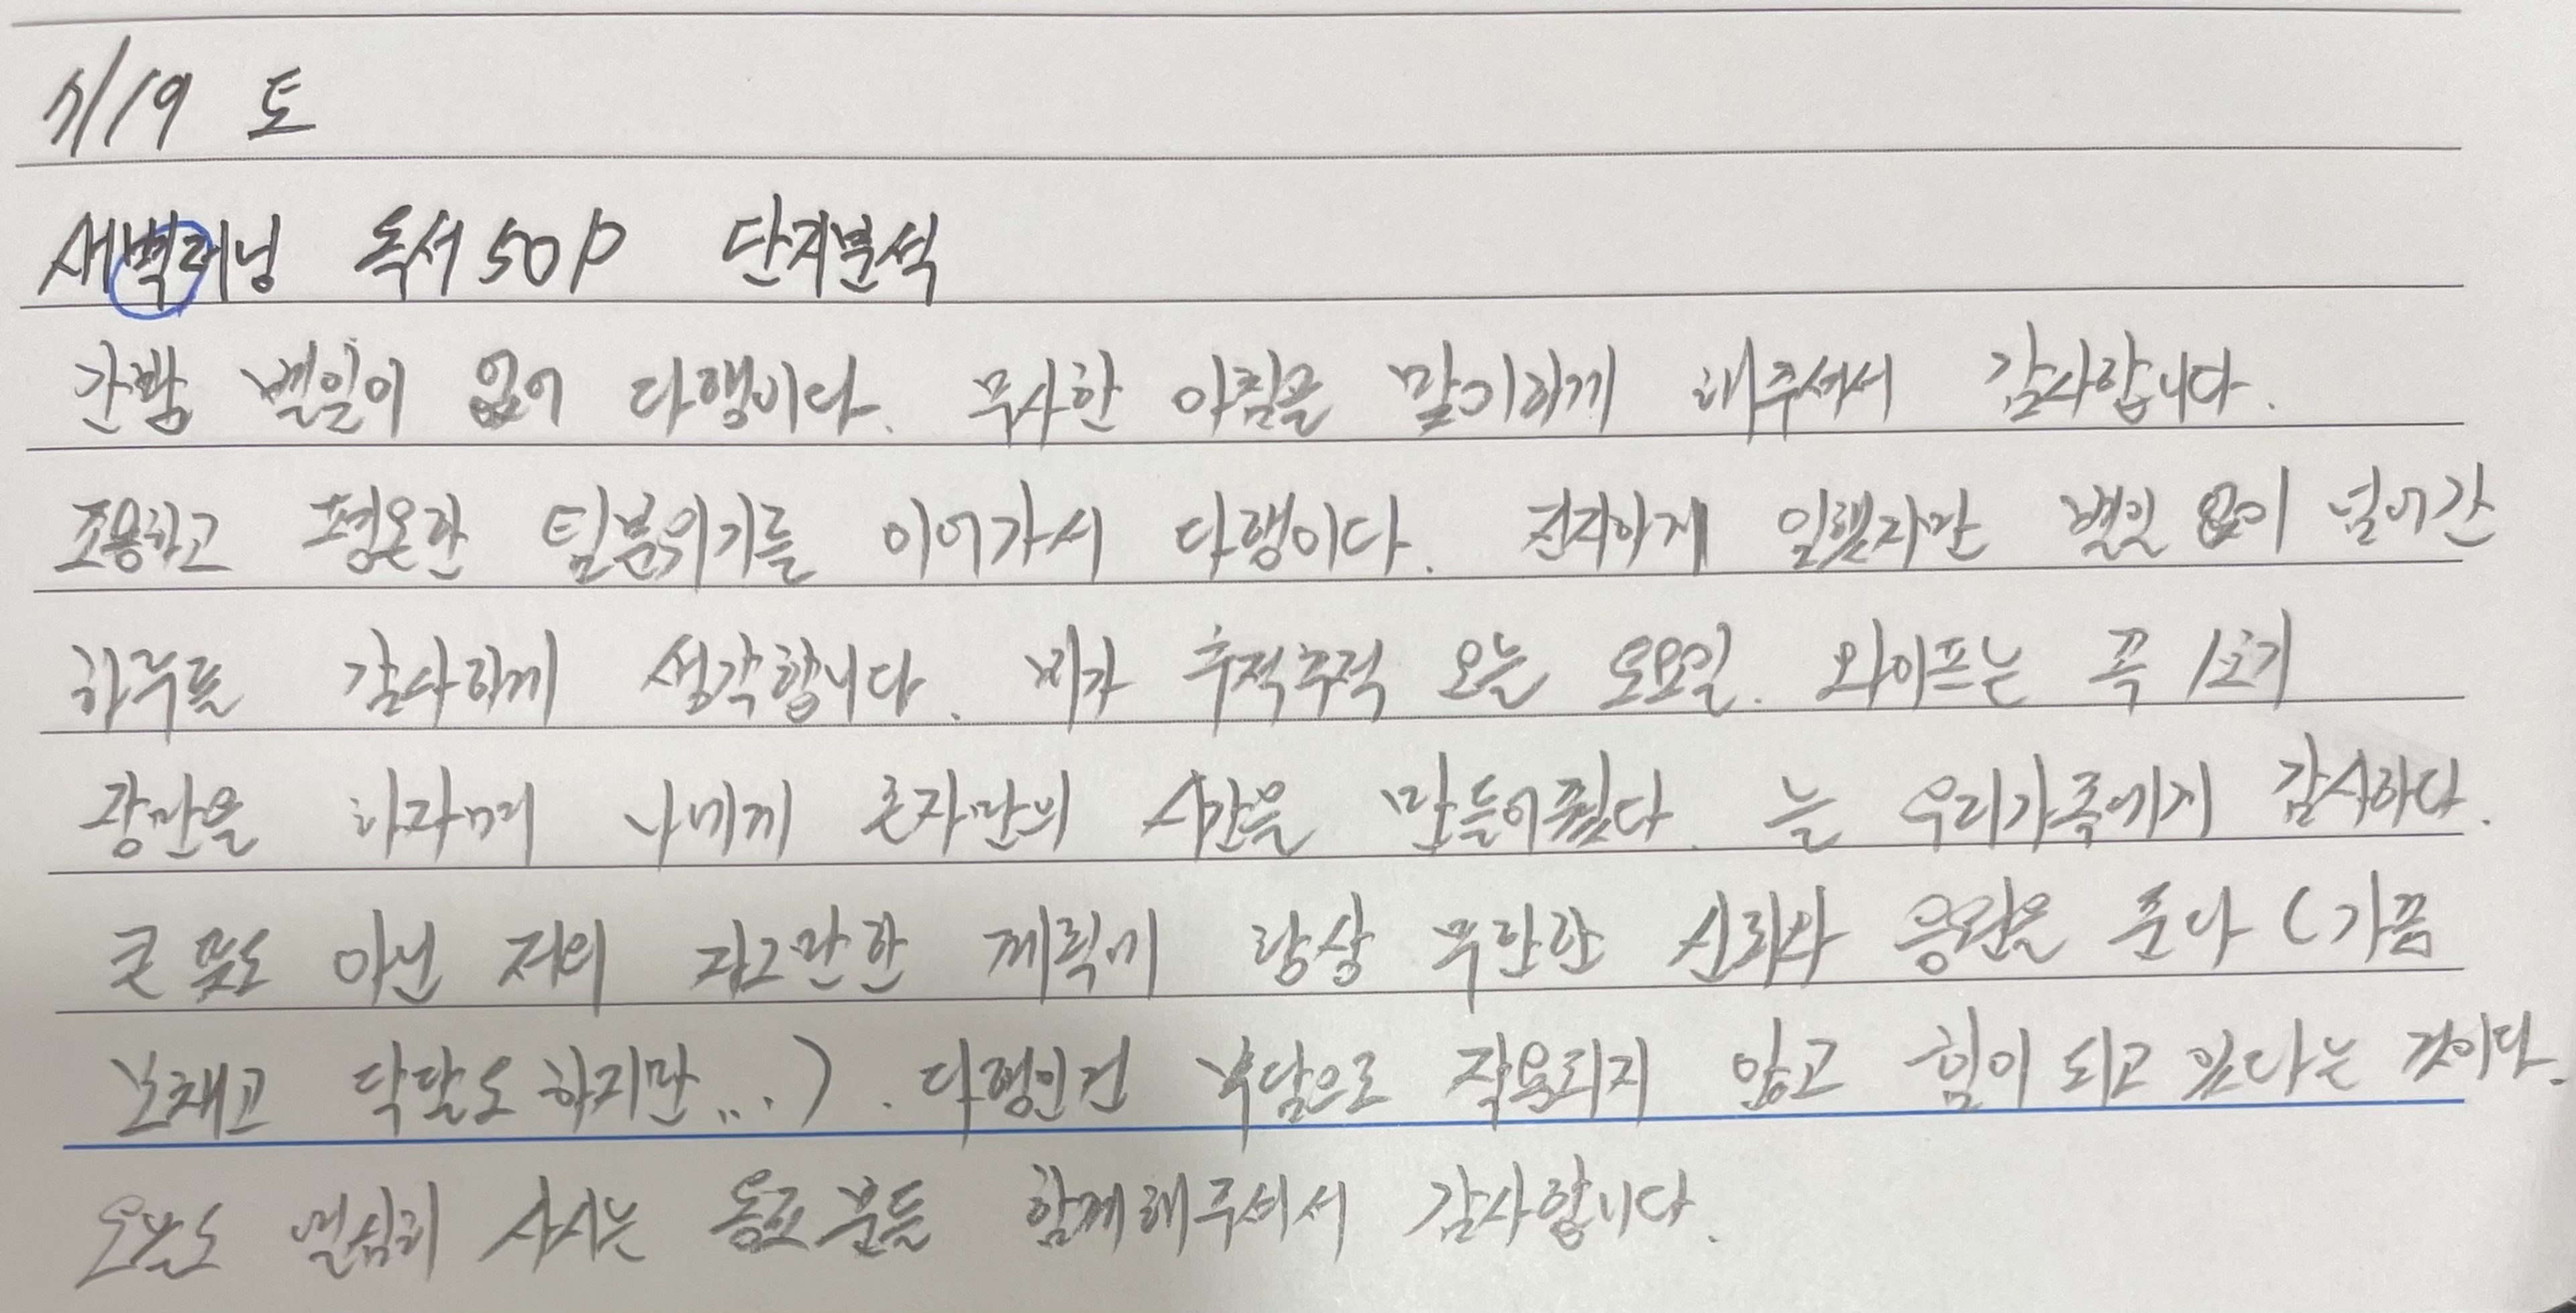 7/19 토
새벽러닝 독서 50p 단지분석
간밤 별일이 없어 다행이다. 무사한 아침을 맞이하게 해주셔서 감사합니다.
조용하고 평온한 팀분위기를 이어가서 다행이다. 일했지만 별일 없이 넘어간
하루를 감사하게 생각합니다. 비가 추적추적 오는 토요일. 와이프는 꼭 1호기
하라며 나에게 혼자만의 시간을 만들어줬다. 는 우리가족에게 감사하다.
큰 꿈도 아닌 저의 자그만한 계획에 항상 무한한 신뢰와 응원을 준다 (가끔
보채고 닥달도 하지만...). 다행인건 부담으로 작용되지 않고 힘이 되고 있다는 것이다.
오늘도 열심히 사시는 동료분들 함께해주셔서 감사합니다.